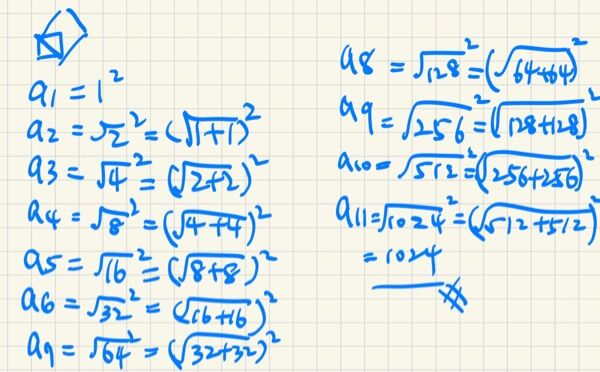 a1 = 1²
a2 = √2² = (√1+1)²
a3 = √4² = (√2+2)²
a4 = √8² = (√4+4)²
a5 = √16² = (√8+8)²
a6 = √32² = (√16+16)²
a9 = √64² = (√32+32)²
a8 = √128² = (√64+64)²
a9 = √256² = (√128+128)²
a10 = √512² = (√256+256)²
a11 = √1024² = (√512+512)²
= 1024